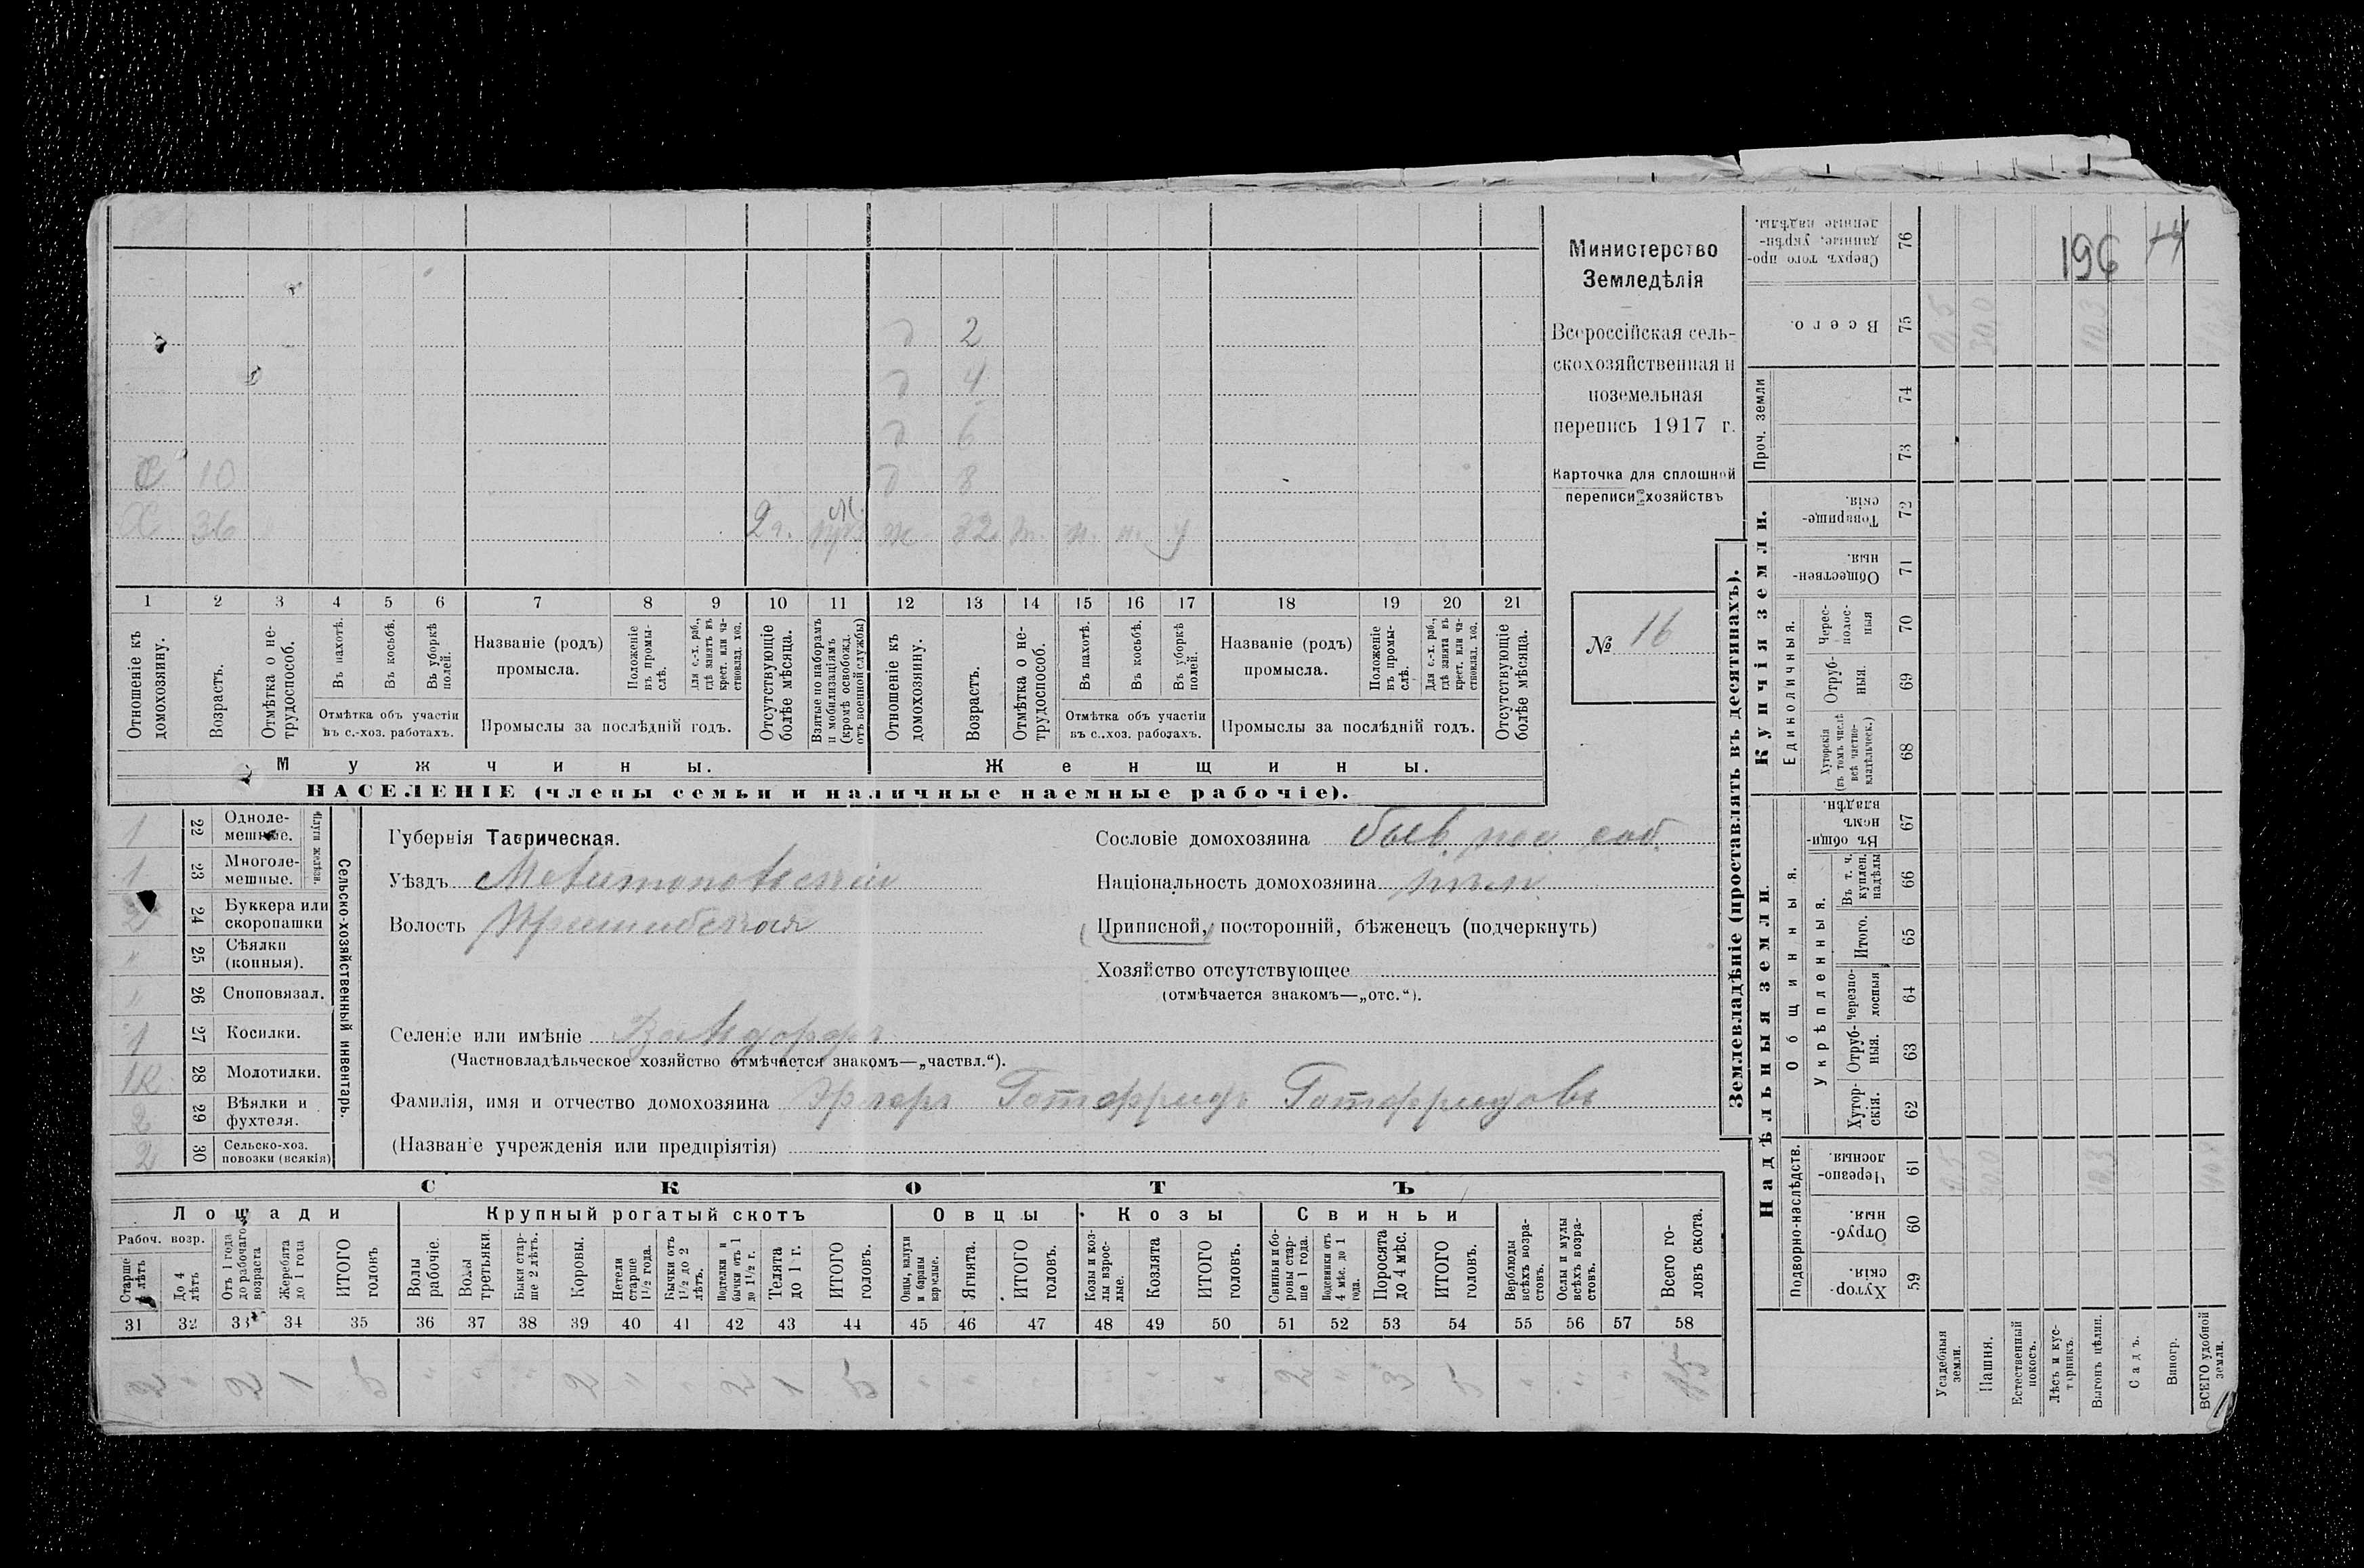 Министерство
Земледѣлія
Всероссійская сель-
скохозяйственная и
поземельная
перепись 1917 г.
Карточка для сплошной
переписи хозяйствъ
№ 16
196
2
4
6
10 8
36 2 г. 32
1 2 3 4 5 6 7 8 9 10 11 12 13 14 15 16 17 18 19 20 21
Отношеніе къ домохозяину.
Возрастъ.
Отмѣтка о не-трудоспособ.
Въ пахотѣ.
Въ косьбѣ.
Въ уборкѣ полей.
Отмѣтка объ участіи
въ с.-хоз. работахъ.
Названіе (родъ)
промысла.
Положеніе въ промы-слѣ.
Для с.-х. раб., гдѣ занятъ въ крест. или ча-стновлад. хоз.
Промыслы за послѣдній годъ.
Отсутствующіе болѣе мѣсяца.
Взятые по наборамъ и мобилизаціямъ (кромѣ освобожд. отъ военной службы)
Отношеніе къ домохозяину.
Возрастъ.
Отмѣтка о не-трудоспособ.
Въ пахотѣ.
Въ косьбѣ.
Въ уборкѣ полей.
Отмѣтка объ участіи
въ с.-хоз. работахъ.
Названіе (родъ)
промысла.
Положеніе въ промы-слѣ.
Для с.-х. раб., гдѣ занята въ крест. или ча-стновлад. хоз.
Промыслы за послѣдній годъ.
Отсутствующіе болѣе мѣсяца.
Мужчины. Женщины.
НАСЕЛЕНІЕ (члены семьи и наличные наемные рабочіе).
Сельско-хозяйственный инвентарь.
Плуги желѣзн.
1 22 Одноле-мешные.
1 23 Многоле-мешные.
24 Буккера или скоропашки
" 25 Сѣялки (конныя).
" 26 Сноповязал.
1 27 Косилки.
1к 28 Молотилки.
2 29 Вѣялки и фухтеля.
2 30 Сельско-хоз. повозки (всякія)
Губернія Таврическая.
Уѣздъ Мелитопольскій
Волость Пришибская
Сословіе домохозяина быв. пос. соб.
Національность домохозяина нѣм.
Приписной, посторонній, бѣженецъ (подчеркнуть)
Хозяйство отсутствующее
(отмѣчается знакомъ—„отс.“).
Селеніе или имѣніе Вальдорфъ
(Частновладѣльческое хозяйство отмѣчается знакомъ—„частвл.“).
Фамилія, имя и отчество домохозяина Готфридъ Готфридовъ
(Названіе учрежденія или предпріятія)
СКОТЪ
Лошади Крупный рогатый скотъ Овцы Козы Свиньи
Рабоч. возр.
Старше 4 лѣтъ
До 4 лѣтъ
Отъ 1 года до рабочаго возраста
Жеребята до 1 года
ИТОГО головъ
Волы рабочіе.
Волы третьяки.
Быки стар-ше 2 лѣтъ.
Коровы.
Нетели старше 1½ года.
Бычки отъ 1½ до 2 лѣтъ.
Подтелки и бычки отъ 1 до 1½ г.
Телята до 1 г.
ИТОГО головъ.
Овцы, валухи и бараны взрослые.
Ягнята.
ИТОГО головъ.
Козы и коз-лы взрос-лые.
Козлята
ИТОГО головъ.
Свиньи и бо-ровы стар-ше 1 года.
Подсвинки отъ 4 мѣс. до 1 года.
Поросята до 4 мѣс.
ИТОГО головъ.
Верблюды всѣхъ возра-стовъ.
Ослы и мулы всѣхъ возра-стовъ.
Всего го-ловъ скота.
31 32 33 34 35 36 37 38 39 40 41 42 43 44 45 46 47 48 49 50 51 52 53 54 55 56 57 58
2 " 2 1 5 " " " 2 " " 2 1 5 " " " " " " 2 " 3 5 " " 15
Землевладѣніе (проставлять въ десятинахъ).
Надѣльныя земли.
Подворно-наслѣдств.
Хутор-скія. 59
Отруб-ныя. 60
Черезпо-лосныя. 61
Общинныя.
Укрѣпленныя.
Хутор-скія. 62
Отруб-ныя. 63
черезпо-лосныя 64
Итого. 65
Въ т. ч. куплен. надѣлы 66
Въ общи-номъ владѣн. 67
Купчія земли.
Единоличныя.
Хуторскія (въ томъ числѣ всѣ частно-владѣльческ.) 68
Отруб-ныя. 69
Черес-полос-ныя 70
Обществен-ныя. 71
Товарище-скія. 72
Проч. земли
73 74
Всего. 75
Сверхъ того про-данные, укрѣп-ленные надѣлы. 76
Усадебныя земли.
Пашня.
Естественный покосъ.
Лѣсъ и кус-тарникъ.
Выгонъ цѣлин.
Садъ.
Виногр.
ВСЕГО удобной земли.